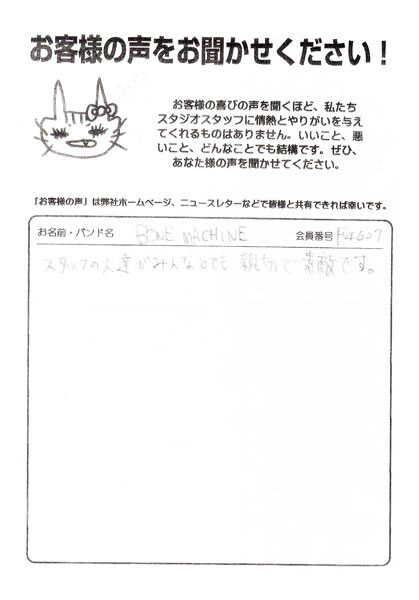 お客様の声をお聞かせください！
お客様の喜びの声を聞くほど、私たち
スタジオスタッフに情熱とやりがいを与え
てくれるものはありません。いいこと、悪
いこと、どんなことでも結構です。ぜひ、
あなた様の声を聞かせてください。
「お客様の声」は弊社ホームページ、ニュースレターなどで皆様と共有できれば幸いです。
お名前・バンド名 BONE MACHINE 会員番号
スタッフの人達がみんなとても親切で素敵です。